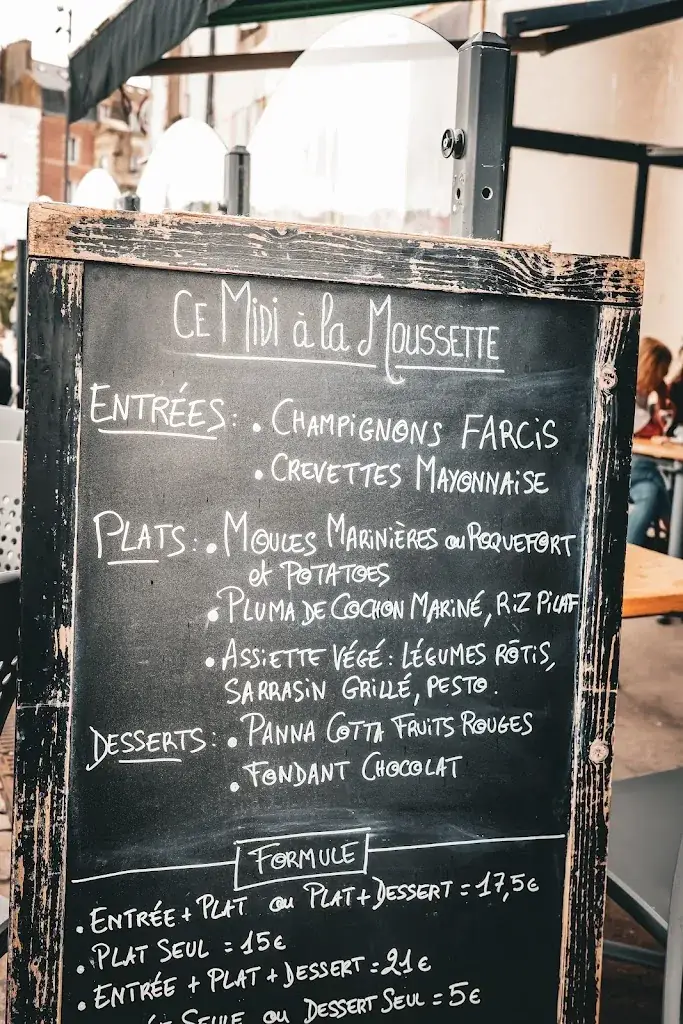 CE MIDI à la MOUSSETTE
ENTRÉES: • CHAMPIGNONS FARCIS
• CREVETTES MAYONNAISE
PLATS: • MOULES MARINIÈRES ou ROQUEFORT
et POTATOES
• PLUMA DE COCHON MARINÉ, RIZ PILAF
• ASSIETTE VÉGÉ: LÉGUMES RÔTIS,
SARRASIN GRILLÉ, PESTO.
DESSERTS: • PANNA COTTA FRUITS ROUGES
• FONDANT CHOCOLAT
FORMULE
• ENTRÉE + PLAT ou PLAT + DESSERT = 17,5€
• PLAT SEUL = 15€
• ENTRÉE + PLAT + DESSERT = 21€
SEULE ou DESSERT SEUL = 5€